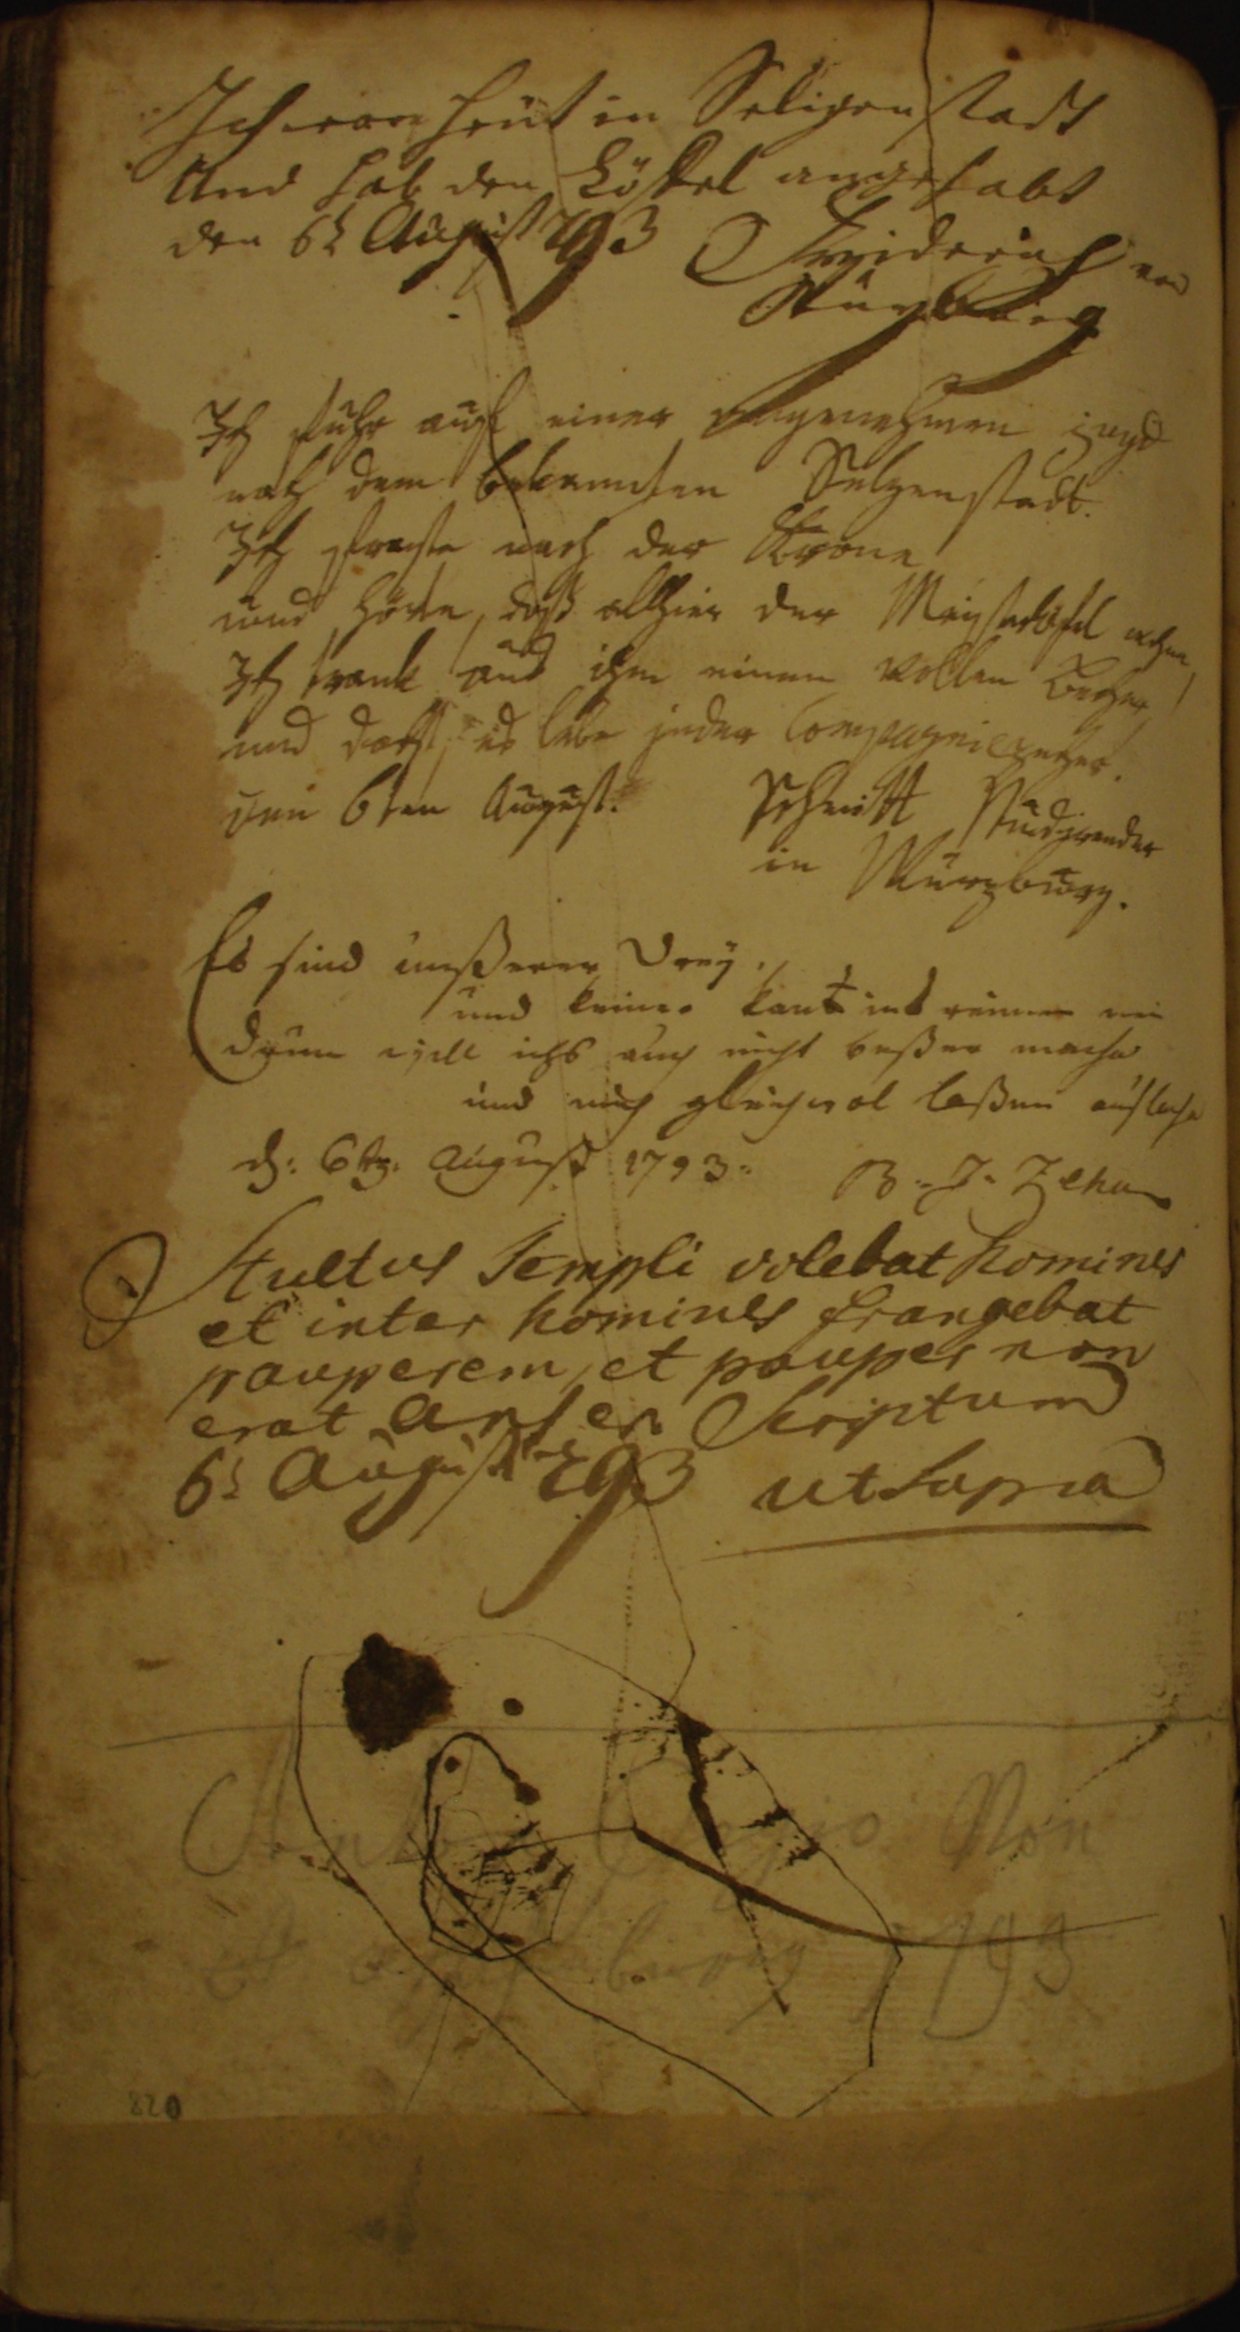 Ich ware heut in Seligenstadt
Und hab den Löffel angehabt
den 6t August 793 Friderich von
Würzburg
Ich fuhr auf einer angenehmen jagd
nach dem bekannten Selgenstadt.
Ich fragte nach der Krone
und höre, daß allhier der
Ich trank aus ihm einen vollen Becher
und dacht, es lebe jeder Compagniezecher.
den 6ten August. Schmitt Studirender
in Würzburg.
Es sind unßerer Drey,
und keiner kant ins reimen ein
drum will ichs auch nicht beßer mache
und mich gleichwol laßen auslache
d: 6tg. August 1793. B. J. Zehn
Stultus Templi volebat homines
et inter homines frangebat
pauperem, et pauper non
erat anser. Scriptum
6t August 793 ut supra
Non
793
820